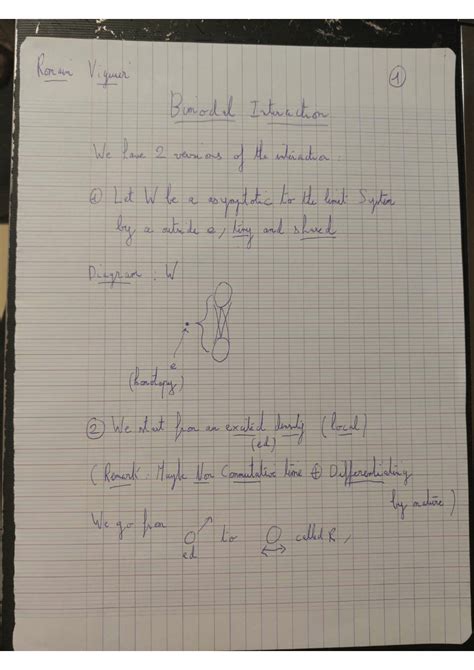 Romain Viguier
①
Bimodal Interaction
We have 2 versions of the interaction:
① Let W be a asymptotic to the limit System
by a outside e, tiny and shared
Diagram : W
e
(homotopy)
② We start from an excited density (local)
(ed)
(Remark: Maybe Non Commutative time ⊕ Differentiating
by nature)
We go from
to
called R,
ed